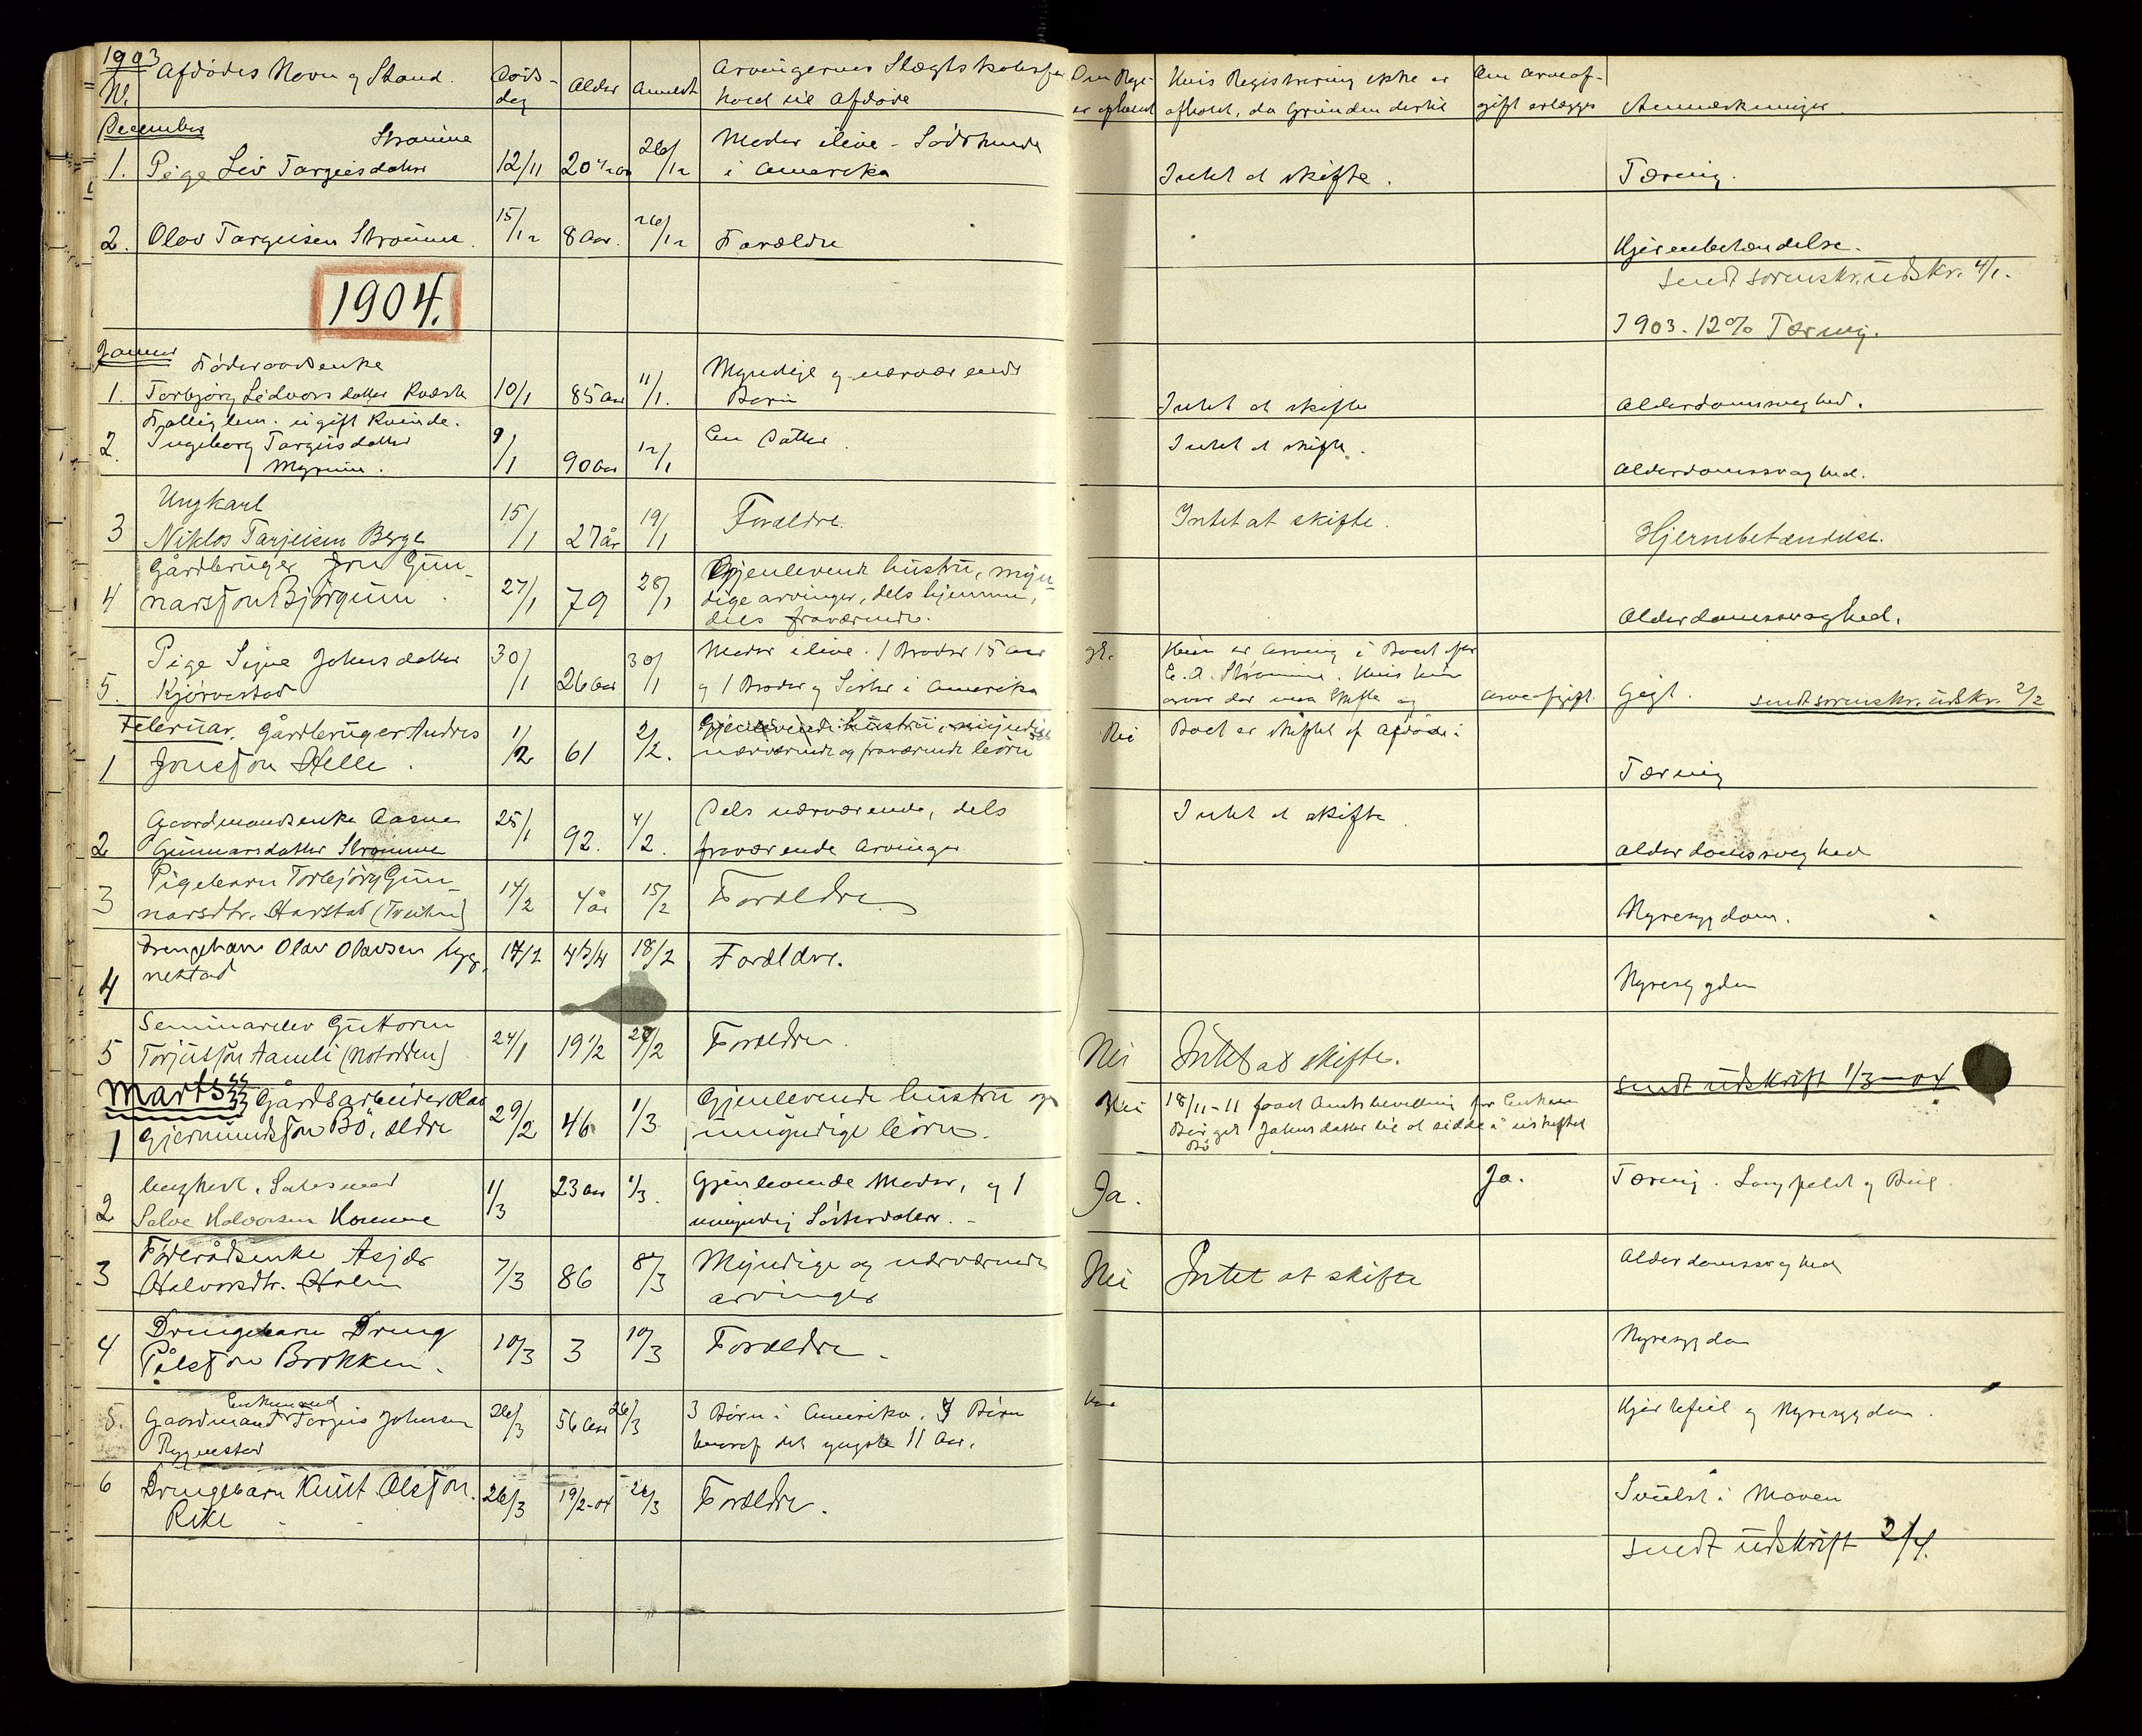 1903
N. Afdødes Navn og Stand. Døds- Alder Anmeldt Arvingernes Slægtskabsfor Om Regi- Hvis Registrering ikke er Om arveaf-
dag hold til Afdøde er afholdt afholdt, da Grunden dertil gift erlægges Anmærkninger
December
Strømme 26/12 Moder ilive - Södskende
1. Pige Liv Targeisdatter 12/11 20 i Amerika Intet at skifte. Tæring.
2. Olav Targeisen Strømme. 15/12 8 Aar. 26/12 Forældre Hjernebetændelse.
sendt sorenskr. udskr. 4/1.
1904.
1903. 12% Tæring.
Januar Föderaadsenke Myndige og nærværende
1. Torbjørg Leidvorsdatter 10/1 85 Aar 11/1. Børn Intet at skifte Alderdomssvaghed.
Fattiglem. ugift Kvinde.
2. Ingeborg Targeisdatter 9/1 90 Aar 12/1 En Datter. Intet at skifte. Alderdomssvaghed.
Myrum.
Ungkarl
3 Niklos Tarjeisen Berge 15/1 27 år 19/1 Forældre. Intet at skifte. Hjernebetændelse.
Gårdbruger Jon Gun- Gjenlevende hustru, myn-
4 narsson Bjørgum. 27/1 79 28/1 dige arvinger, dels hjemme, Alderdomssvaghed.
dels fraværende.
Pige Signe Johnsdatter 30/1 30/1 Moder ilive. 1 Broder 15 Aar Hun er Arving i Boet efter
5. Kjørvestad 26 Aar og 1 Broder og Söster i Amerika E. A. Strømme. Hvis hun
arver der maa Skifte og arveafgift. Gigt. sendt sorenskr. udskr. 2/2
Februar. Gårdbruger Andres 1/2 2/2. Gjenlevende hustru, myndige Nei Boet er skiftet af Afdöde.
1 Jonsson Helle. 61 nærværende og fraværende børn Tæring
Gaardmandsenke Aasne 25/1 4/2. Dels nærværende, dels Intet at skifte.
2 Gunnarsdatter Strømme 92. fraværende Arvinger. Alderdomssvaghed
Pigebarn Torbjørg Gun-
3 narsdtr. Harstad 14/2 4 år 15/2 Forældre Nyresygdom.
Drengebarn Olav Olavsen Ryg-
4 nestad 17/2 4 3/4 18/2 Forældre. Nyresygdom
Seminarelev Guttorm
5 Torjusson Aamli (Notodden) 24/1 19 1/2 28/2 Forældre. Nei Intet at skifte.
sendt udskrift 1/3-04
Marts Gårdsarbeider Gjenlevende hustru og Nei 18/11-11 faaet Amtsbevilling for Enken
1 Gjermundsson Bö, ældre 29/2 46 1/3 umyndige børn. Birgit Johnsdatter til at sidde i uskiftet
Bo
Ungkarl. Salve Halvorsen Homme 23 Aar 1/3. Gjenlevende Moder, og 1 Ja. Ja. Tæring.
2 1/3 umyndig Søsterdatter. -
Föderådsenke Asjær Myndige og nærværende
3 Halvorsdtr. Holen 7/3 86 8/3 arvinger Nei Intet at skifte Alderdomssvaghed
Drengebarn Dreng
4 Pålsson Brokken. 10/3 3 10/3 Forældre. Nyresygdom
Enkemand
5. Gaardmand Torgeis Johnsen 26/3 56 Aar 26/3 3 Børn i Amerika. Børn Hjertefeil og Nyresygdom.
Rygnestad hvoraf det yngste 11 Aar.
6 Drengebarn Knut Olsson. 26/3 19/2-04 26/3 Forældre. Svulst i Maven
Rike
sendt udskrift 2/4.